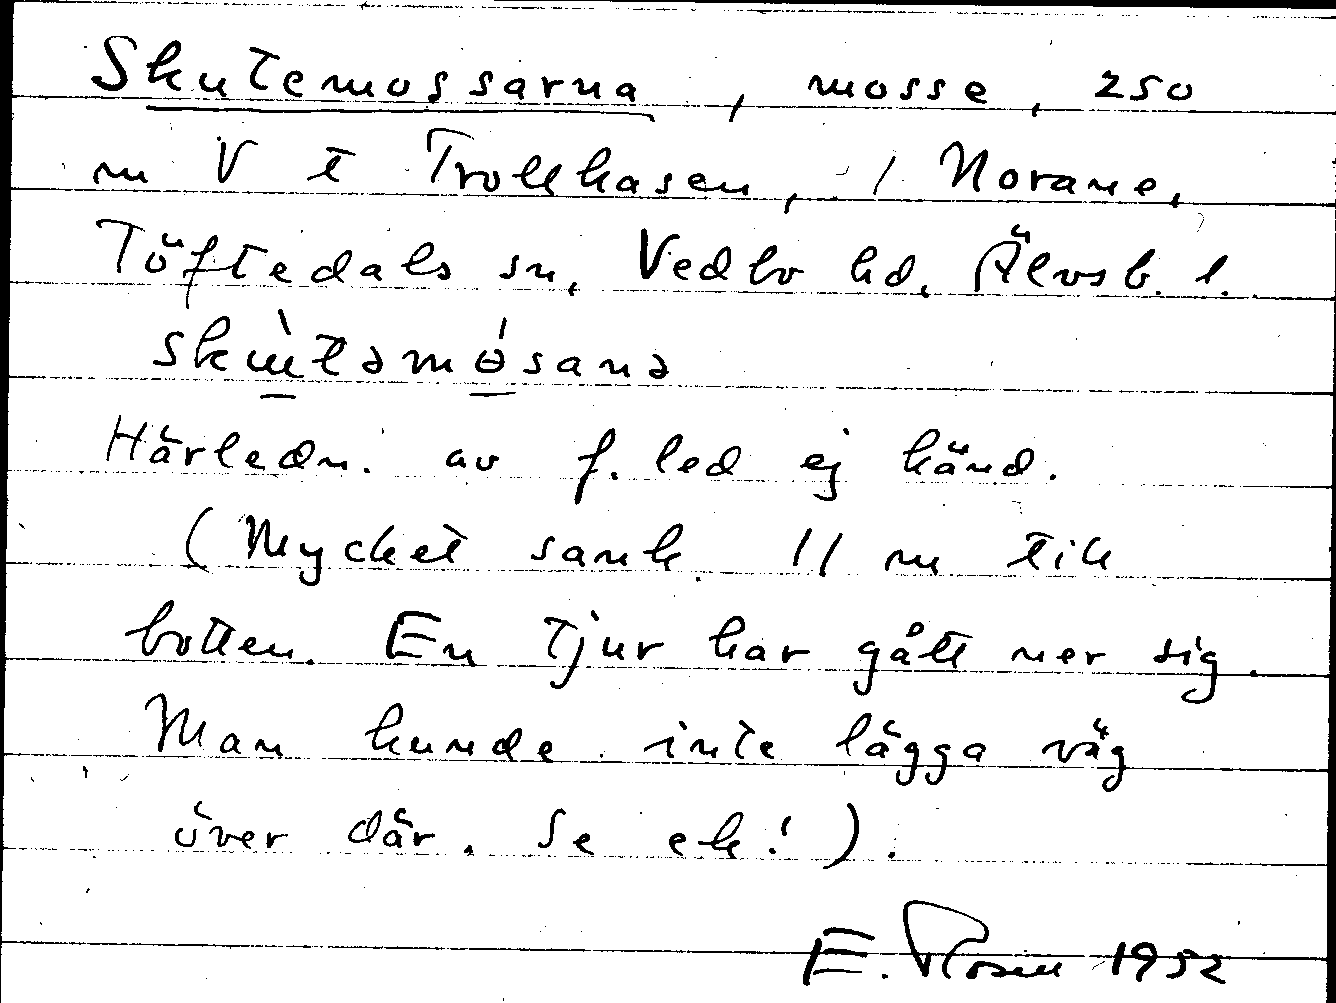 Skutemossarna, mosse, 250
m V t Trollhasen, i Norane,
Töftedals sn, Vedbo hd, Älvsb. l.
Härledn. av f. led ej känd.
(Mycket sank. 11 m till
botten. En tjur har gått ner sig.
Man kunde inte lägga väg
över där. Se ek!).
E. Rosén 1952